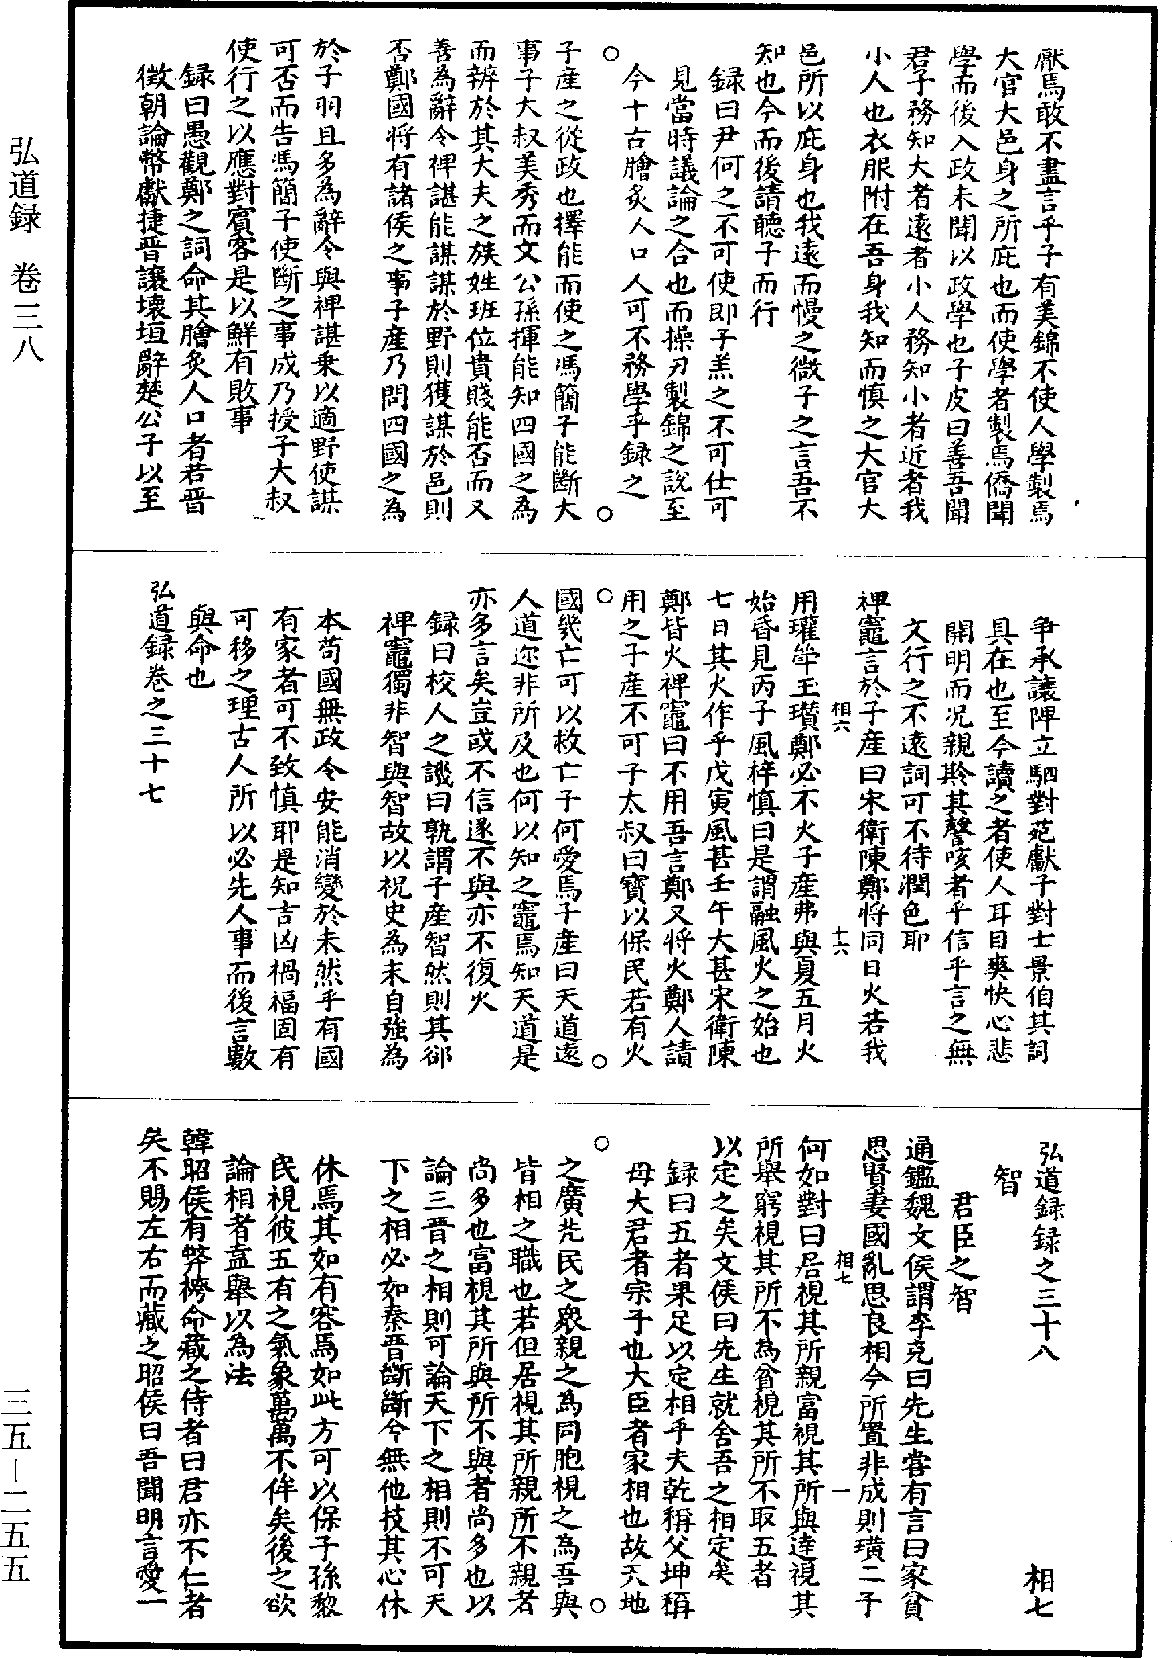 弘道録　卷三八
三五—二五五
厭焉敢不盡言乎子有美錦不使人學製焉
大官大邑身之所庇也而使學者製焉僑聞
學而後入政未聞以政學也子皮曰善吾聞
君子務知大者遠者小人務知小者近者我
小人也衣服附在吾身我知而慎之大官大
邑所以庇身也我遠而慢之微子之言吾不
知也今而後請聽子而行
録曰尹何之不可使即子羔之不可仕可
見當時議論之合也而操刃製錦之說至
今十古膾炙人口人可不務學乎録之
○　○
子產之從政也擇能而使之馮簡子能斷大
事子大叔美秀而文公孫揮能知四國之為
而辨於其大夫之族姓班位貴賤能否而又
善為辭令裨諶能謀謀於野則獲謀於邑則
否鄭國將有諸侯之事子產乃問四國之為
於子羽且多為辭令與裨諶乘以適野使謀
可否而告馮簡子使斷之事成乃授子大叔
使行之以應對賓客是以鮮有敗事
録曰愚觀鄭之詞命其膾炙人口者若晉
徵朝論幣獻捷晉讓壞垣辭楚公子以至
争承讓陴立駟對范獻子對士景伯其詞
具在也至今讀之者使人耳目爽快心悲
開明而况親聆其謦咳者乎信乎言之無
文行之不遠詞可不待潤色耶
相六　十六
裨竈言於子產曰宋衛陳鄭將同日火若我
用瓘斚玉瓚鄭必不火子產弗與夏五月火
始昏見丙子風梓慎曰是謂融風火之始也
七日其火作乎戊寅風甚壬午大甚宋衛陳
鄭皆火裨竈曰不用吾言鄭又將火鄭人請
用之子產不可子太叔曰寶以保民若有火
○　○
國幾亡可以救亡子何愛焉子產曰天道遠
人道邇非所及也何以知之竈焉知天道是
亦多言矣豈或不信遂不與亦不復火
録曰校人之譏曰孰謂子產智然則其郤
裨竈獨非智與智故以祝史為末自強為
本苟國無政令安能消變於未然乎有國
有家者可不致慎耶是知吉凶禍福固有
可移之理古人所以必先人事而後言數
與命也
弘道録卷之三十七
弘道録録之三十八　相七
智
君臣之智
通鑑魏文侯謂李克曰先生嘗有言曰家貧
思賢妻國亂思良相今所置非成則璜二子
相七　一
何如對曰居視其所親富視其所與達視其
所舉窮視其所不為貧視其所不取五者
以定之矣文侯曰先生就舍吾之相定矣
録曰五者果足以定相乎夫乾稱父坤稱
母大君者宗子也大臣者家相也故天地
○　○
之廣先民之衆親之為同胞視之為吾與
皆相之職也若但居視其所親所不親者
尚多也富視其所與所不與者尚多也以
論三晉之相則可論天下之相則不可天
下之相必如秦晋斷斷兮無他技其心休
休焉其如有容焉如此方可以保子孫黎
民視彼五有之氣象萬萬不侔矣後之欲
論相者盍舉以為法
韓昭侯有弊袴命藏之侍者曰君亦不仁者
矣不賜左右而藏之昭侯曰吾聞明言愛一